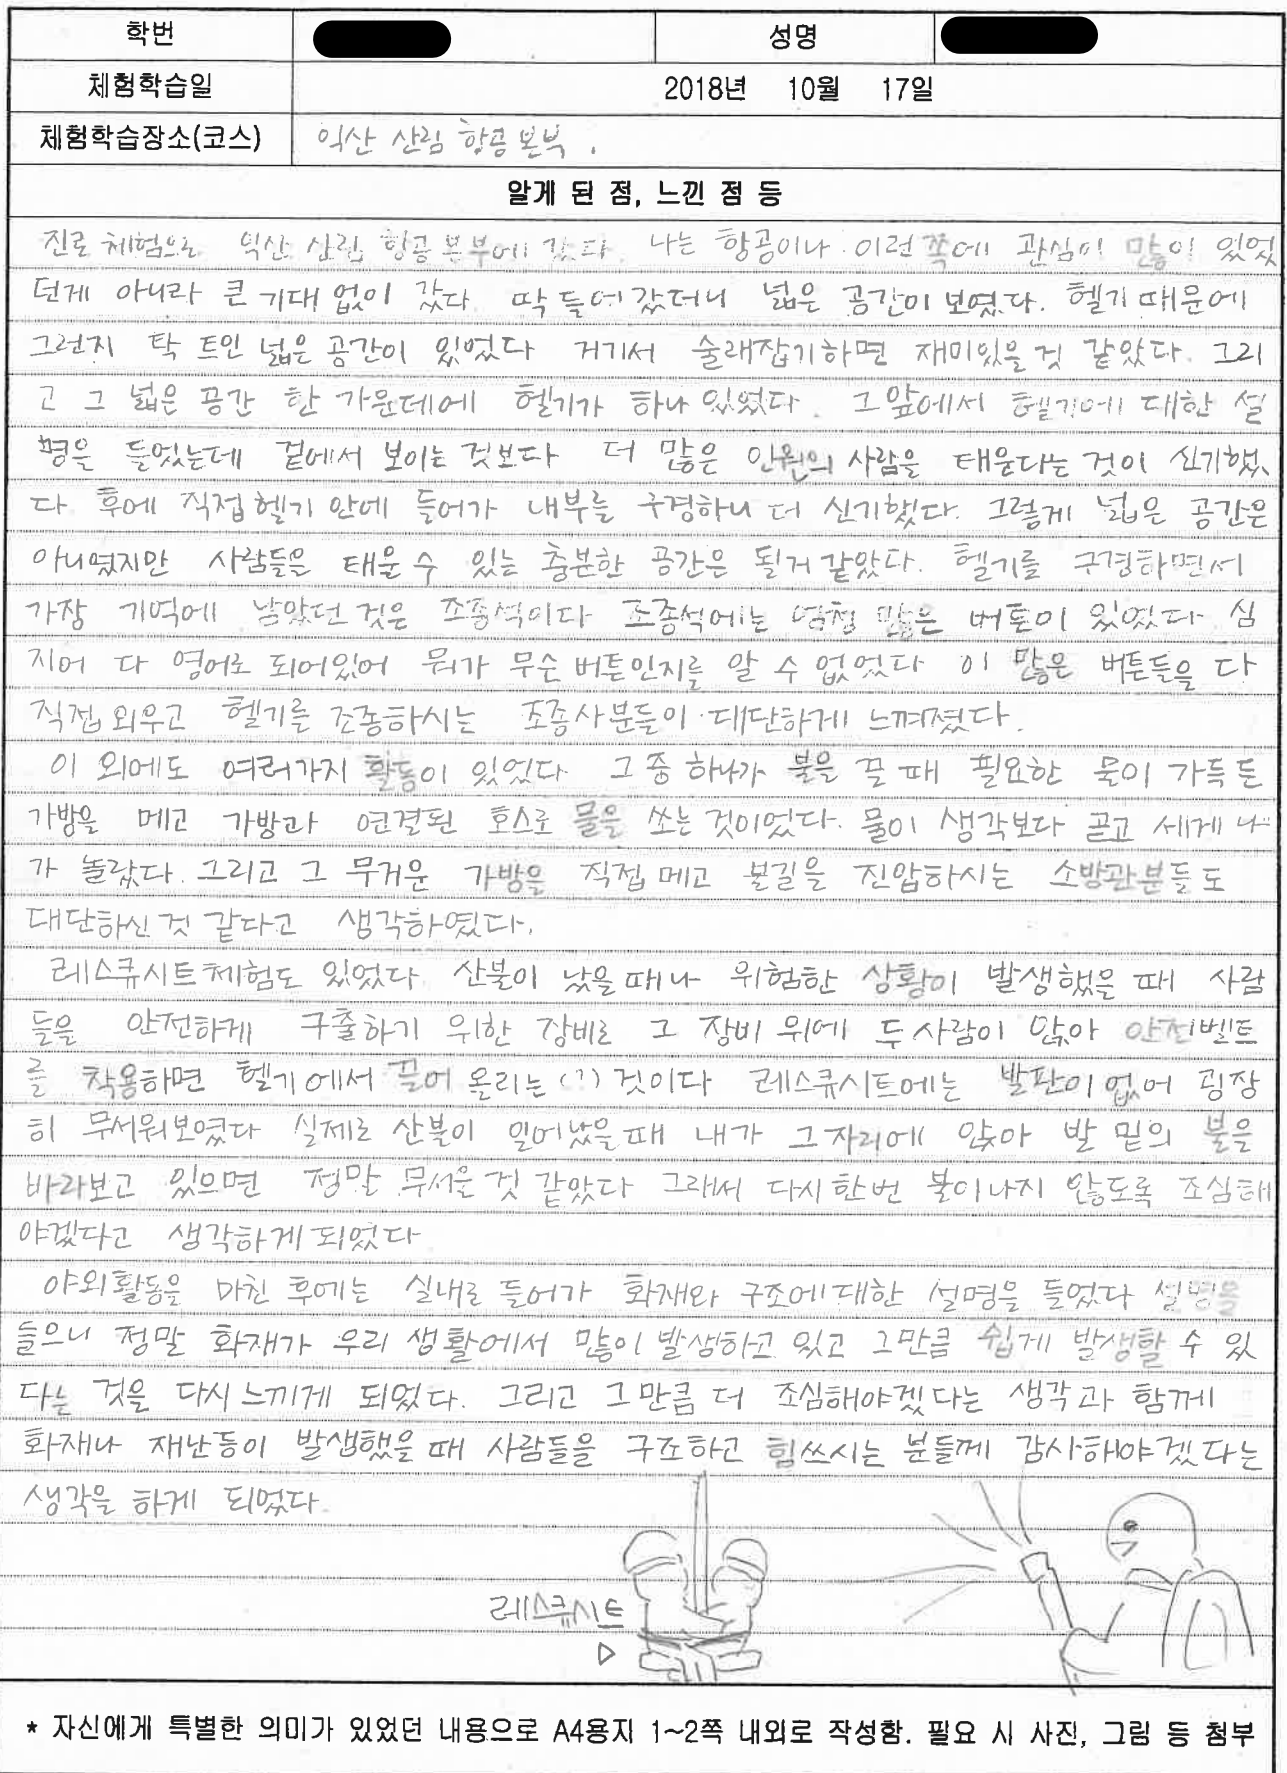 학번 성명
체험학습일 2018년 10월 17일
체험학습장소(코스) 익산 산림 항공 본부.
알게 된 점, 느낀 점 등
진로 체험으로 익산 산림 항공 본부에 갔다. 나는 항공이나 이런쪽에 관심이 많이 있었
던게 아니라 큰 기대 없이 갔다. 딱 들어갔더니 넓은 공간이 보였다. 헬기 때문에
그런지 탁 트인 넓은 공간이 있었다 거기서 술래잡기하면 재미있을 것 같았다. 그리
고 그 넓은 공간 한 가운데에 헬기가 하나 있었다. 그 앞에서 헬기에 대한 설
명을 들었는데 겉에서 보이는 것보다 더 많은 인원의 사람을 태운다는 것이 신기했
다. 후에 직접 헬기 안에 들어가 내부를 구경하니 더 신기했다. 그렇게 넓은 공간은
아니였지만 사람들은 태울 수 있는 충분한 공간은 될거 같았다. 헬기를 구경하면서
가장 기억에 남았던 것은 조종석이다 조종석에는 엄청 많은 버튼이 있었다 심
지어 다 영어로 되어있어 뭐가 무슨 버튼인지를 알 수 없었다 이 많은 버튼들을 다
직접 외우고 헬기를 조종하시는 조종사분들이 대단하게 느껴졌다.
이 외에도 여러가지 활동이 있었다 그 중 하나가 불을 끌 때 필요한 물이 가득 든
가방을 메고 가방과 연결된 호스로 물을 쏘는 것이었다. 물이 생각보다 곧고 세게 나
가 놀랐다. 그리고 그 무거운 가방을 직접 메고 불길을 진압하시는 소방관분들도
대단하신 것 같다고 생각하였다.
레스큐시트 체험도 있었다. 산불이 났을 때나 위험한 상황이 발생했을 때 사람
들을 안전하게 구출하기 위한 장비로 그 장비 위에 두 사람이 앉아 안전벨트
를 착용하면 헬기에서 끌어 올리는(?) 것이다 레스큐시트에는 발판이 없어 굉장
히 무서워보였다 실제로 산불이 일어났을 때 내가 그 자리에 앉아 발 밑의 불을
바라보고 있으면 정말 무서울 것 같았다 그래서 다시 한번 불이나지 않도록 조심해
야겠다고 생각하게 되었다
야외활동을 마친 후에는 실내로 들어가 화재와 구조에 대한 설명을 들었다 설명을
들으니 정말 화재가 우리 생활에서 많이 발생하고 있고 그만큼 쉽게 발생할 수 있
다는 것을 다시 느끼게 되었다. 그리고 그만큼 더 조심해야겠다는 생각과 함께
화재나 재난등이 발생했을 때 사람들을 구조하고 힘쓰시는 분들께 감사해야겠다는
생각을 하게 되었다.
레스큐시트
▷
* 자신에게 특별한 의미가 있었던 내용으로 A4용지 1~2쪽 내외로 작성함. 필요 시 사진, 그림 등 첨부